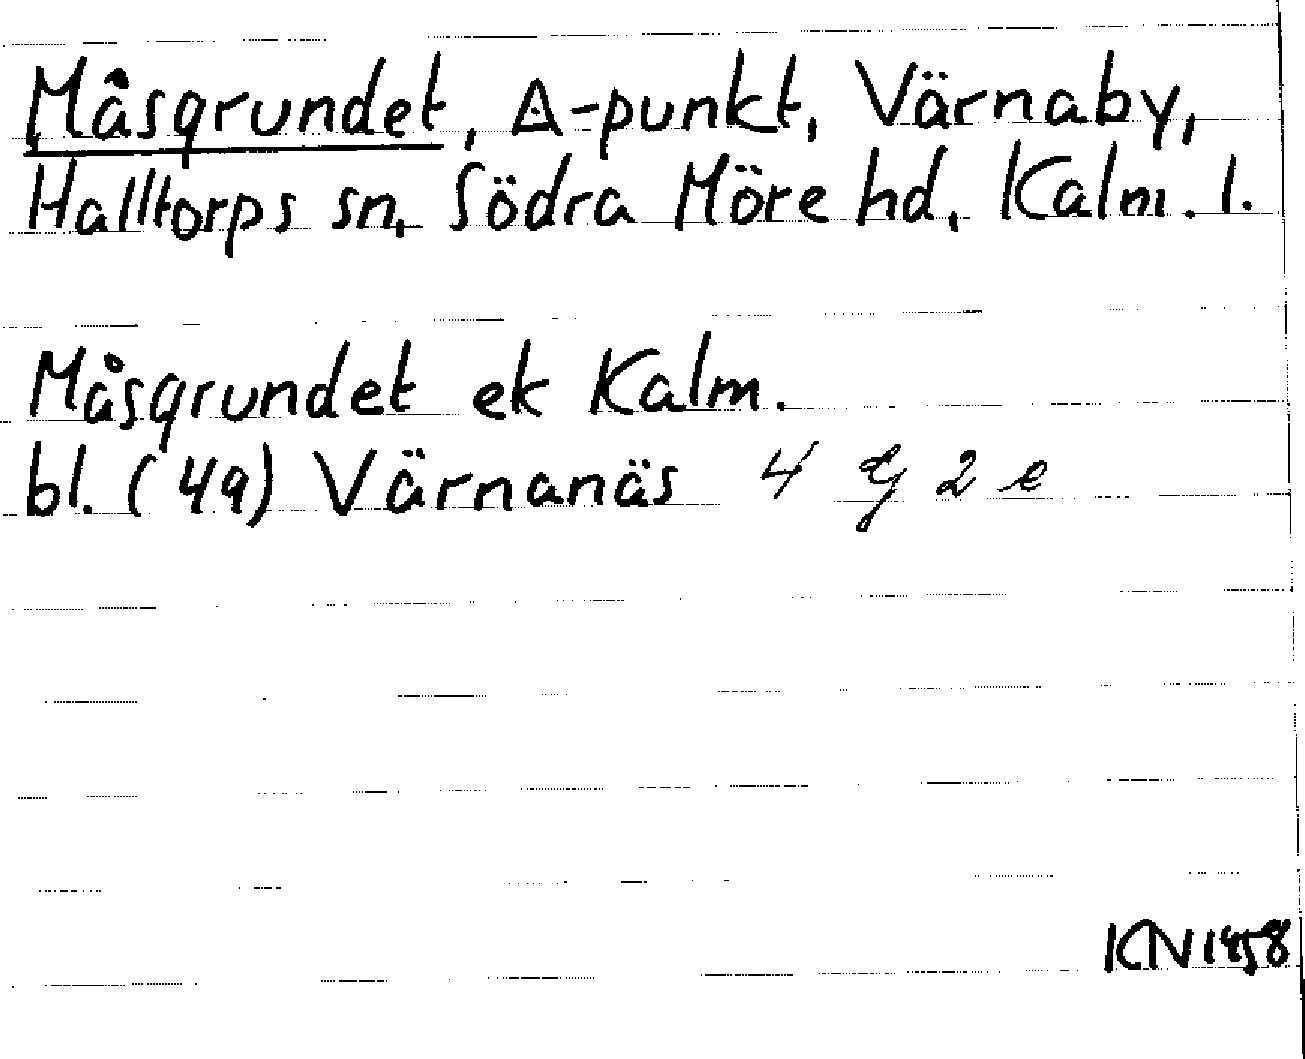 Måsgrundet, Δ-punkt, Värnaby,
Halltorps sn, Södra Möre hd, Kalm. l.
Måsgrundet ek Kalm.
bl. (49) Värnanäs 4 G 2 e
KN 1958